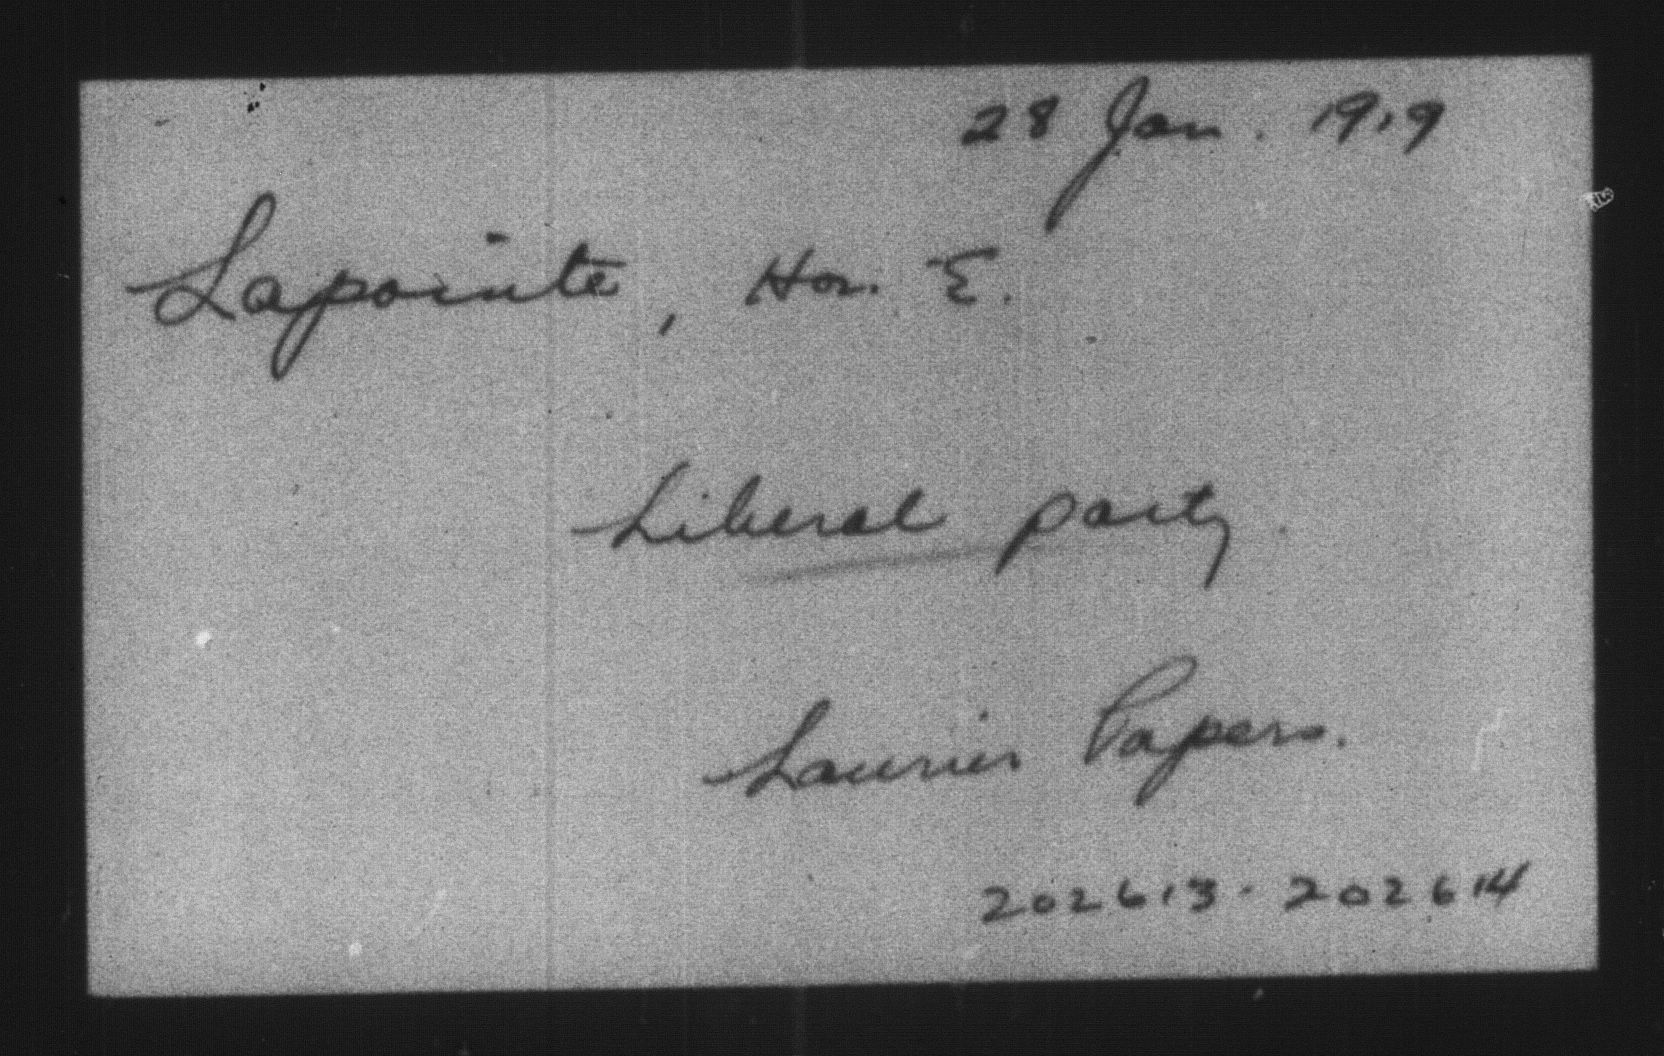 28 Jan. 1919
Lapointe, Hon. E.
Liberal party.
Laurier Papers.
202613-202614